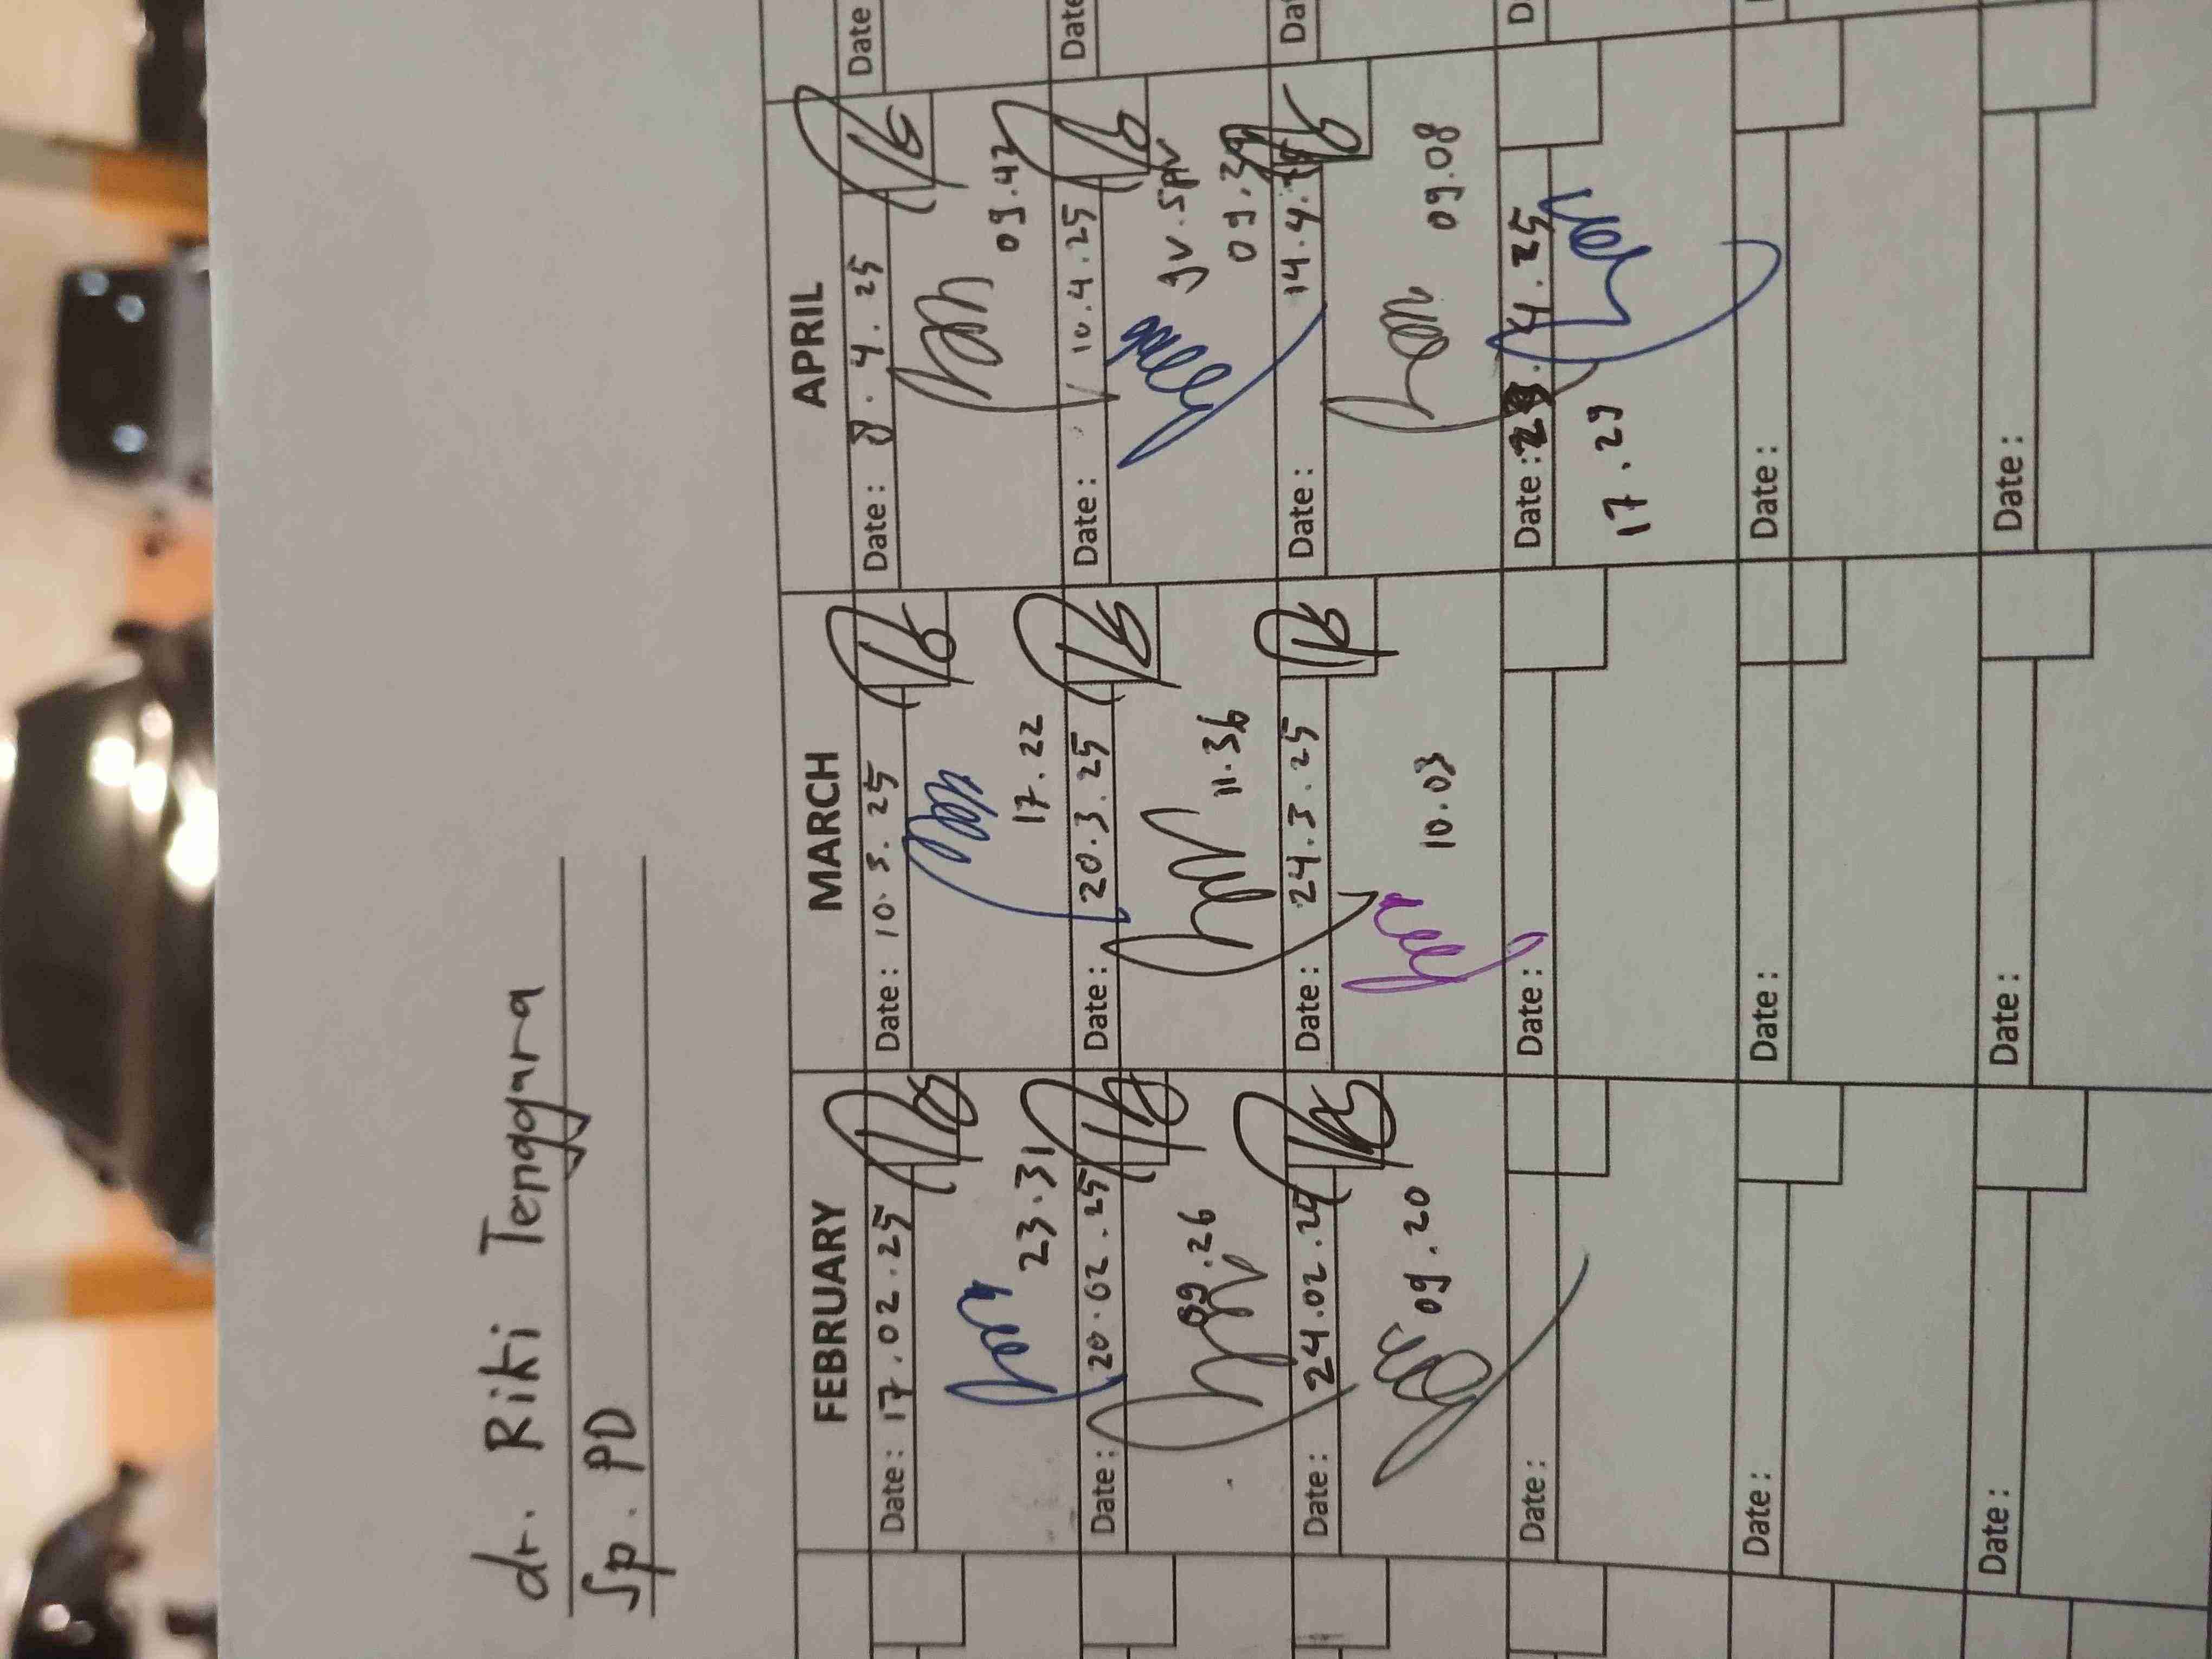 dr. Riki Tenggara
Sp. PD
FEBRUARY MARCH APRIL
Date: 17.02.25 Date: 10.3.25 Date: 8.4.25 Date
23.31 17.22 09.42
Date: 20.02.25 Date: 20.3.25 Date: 10.4.25 Date
09.26 11.36 JV.SPV
09.
Date: 24.02.25 Date: 24.3.25 Date: 14.4. Da
09.20 10.03 09.08
Date: Date: Date: .4.25 D
17.29
Date: Date: Date:
Date: Date: Date: